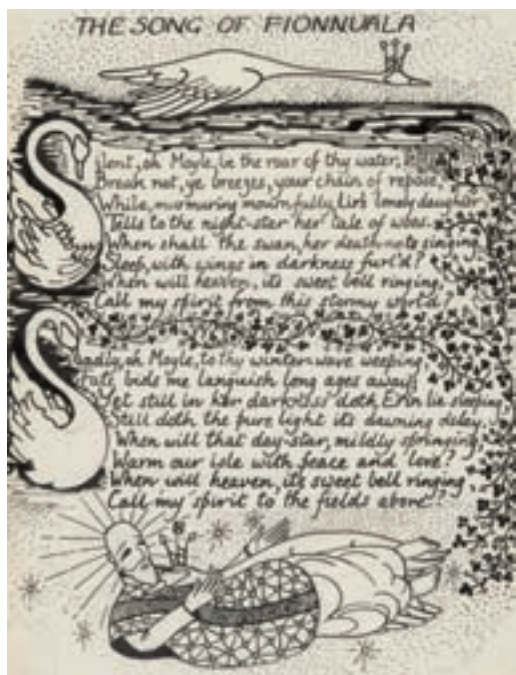 THE SONG OF FIONNUALA
Silent, oh Moyle, be the roar of thy water,
Break not, ye breezes, your chain of repose,
While, murmuring mournfully, Lir's lonely daughter
Tells to the night-star her tale of woes.
When shall the swan, her death-note singing,
Sleep, with wings in darkness furl'd?
When will heaven, its sweet bell ringing,
Call my spirit from this stormy world?
Sadly, oh Moyle, to thy winter wave weeping
Fate bids me languish long ages away;
Yet still in her darkness doth Erin lie sleeping
Still doth the pure light its dawning delay.
When will that day-star, mildly springing,
Warm our isle with peace and love?
When will heaven, its sweet bell ringing,
Call my spirit to the fields above?